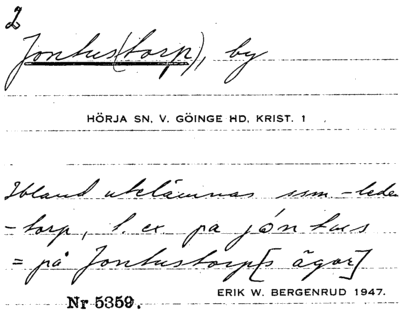 2
Jontus(torp), by
HÖRJA SN. V. GÖINGE HD, KRIST. 1
Ibland utelämnas ssm-leden
-torp, t. ex på jóntus
= på Jontustorp[s ägor]
ERIK W. BERGENRUD 1947.
Nr 5359.